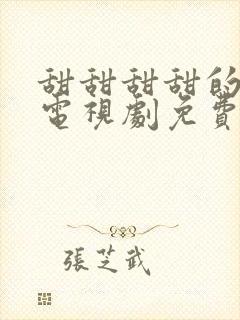 甜甜甜甜的
電視劇免費
張芝武